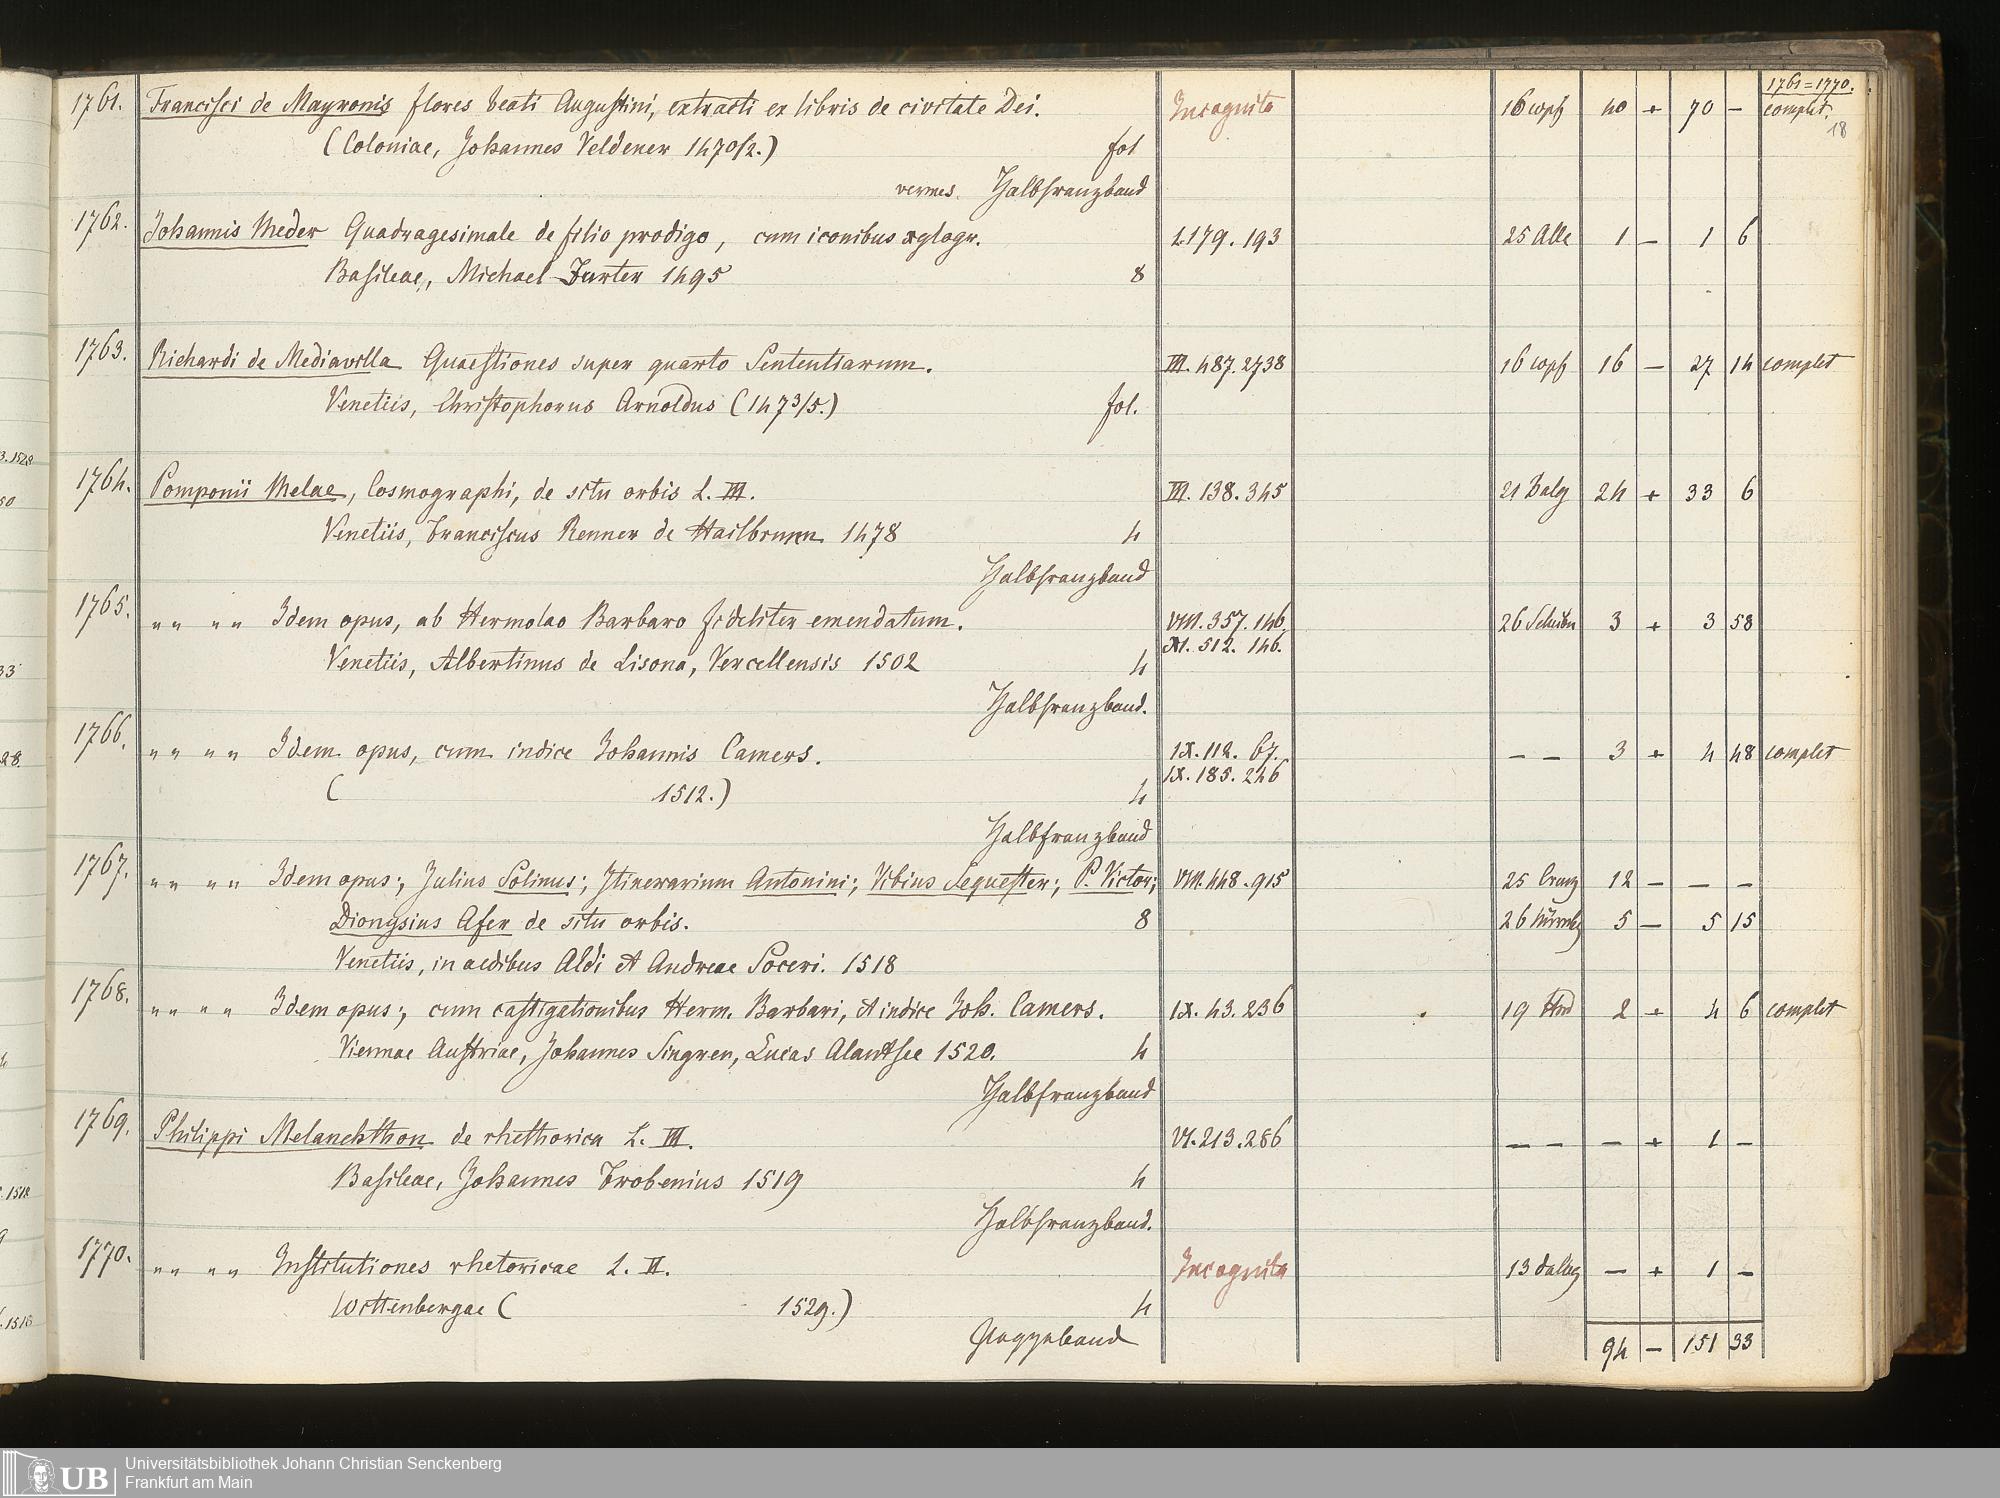 1761=1770.
1761. Francisci de Mayronis flores beati Augustini, extracti ex libris de civitate Dei. Incognita 16 40 + 70 — complet.
18
(Coloniae, Johannes Veldener 1470/2.) fol
vermes. Halbfranzband
1762. Johannis Meder Quadragesimale de filio prodigo, cum iconibus xylogr. I.179.193 25 1 — 1 6
Basileae, Michael Furter 1495 8
1763. Richardi de Mediavilla Quaestiones super quarto Sententiarum. III.487.2738 16 16 — 27 14 complet
Venetiis, Christophorus Arnoldus (1473/5.) fol.
1764. Pomponii Melae, Cosmographi, de situ orbis L. III. III.138.345 21 24 + 33 6
Venetiis, Franciscus Renner de Hailbrunn 1478 4
Halbfranzband
1765. " " " " Idem opus, ab Hermolao Barbaro fideliter emendatum. VIII.357.146 26 3 + 3 58
XI.512.146.
Venetiis, Albertinus de Lisona, Vercellensis 1502 4
Halbfranzband.
1766. " " " " Idem opus, cum indice Johannis Camers. IX.112.67. — — 3 + 4 48 complet
IX.185.246
( 1512.) 4
Halbfranzband
1767. " " " " Idem opus; Julius Solinus; Itinerarium Antonini; Vibius Sequester; P. Victor; VIII.448.915 25 12 — — —
Dionysius Afer de situ orbis. 8 26 5 — 5 15
Venetiis, in aedibus Aldi et Andreae Soceri. 1518
1768. " " " " Idem opus; cum castigationibus Herm. Barbari, et indice Joh. Camers. IX.43.236 19 2 + 4 6 complet
Viennae Austriae, Johannes Singren, Lucas Alantsee 1520. 4
Halbfranzband
1769. Philippi Melanchthon de rhethorica L. III. VI.213.286 — — — + 1 —
Basileae, Johannes Frobenius 1519 4
Halbfranzband.
1770. " " " " Institutiones rhetoricae L. II. Incognita 13 — + 1 —
Wittenbergae ( 1529.) 4
Pappband
94 — 151 33
3.1528
50
33
28.
1518
.1518
UB
Universitätsbibliothek Johann Christian Senckenberg
Frankfurt am Main